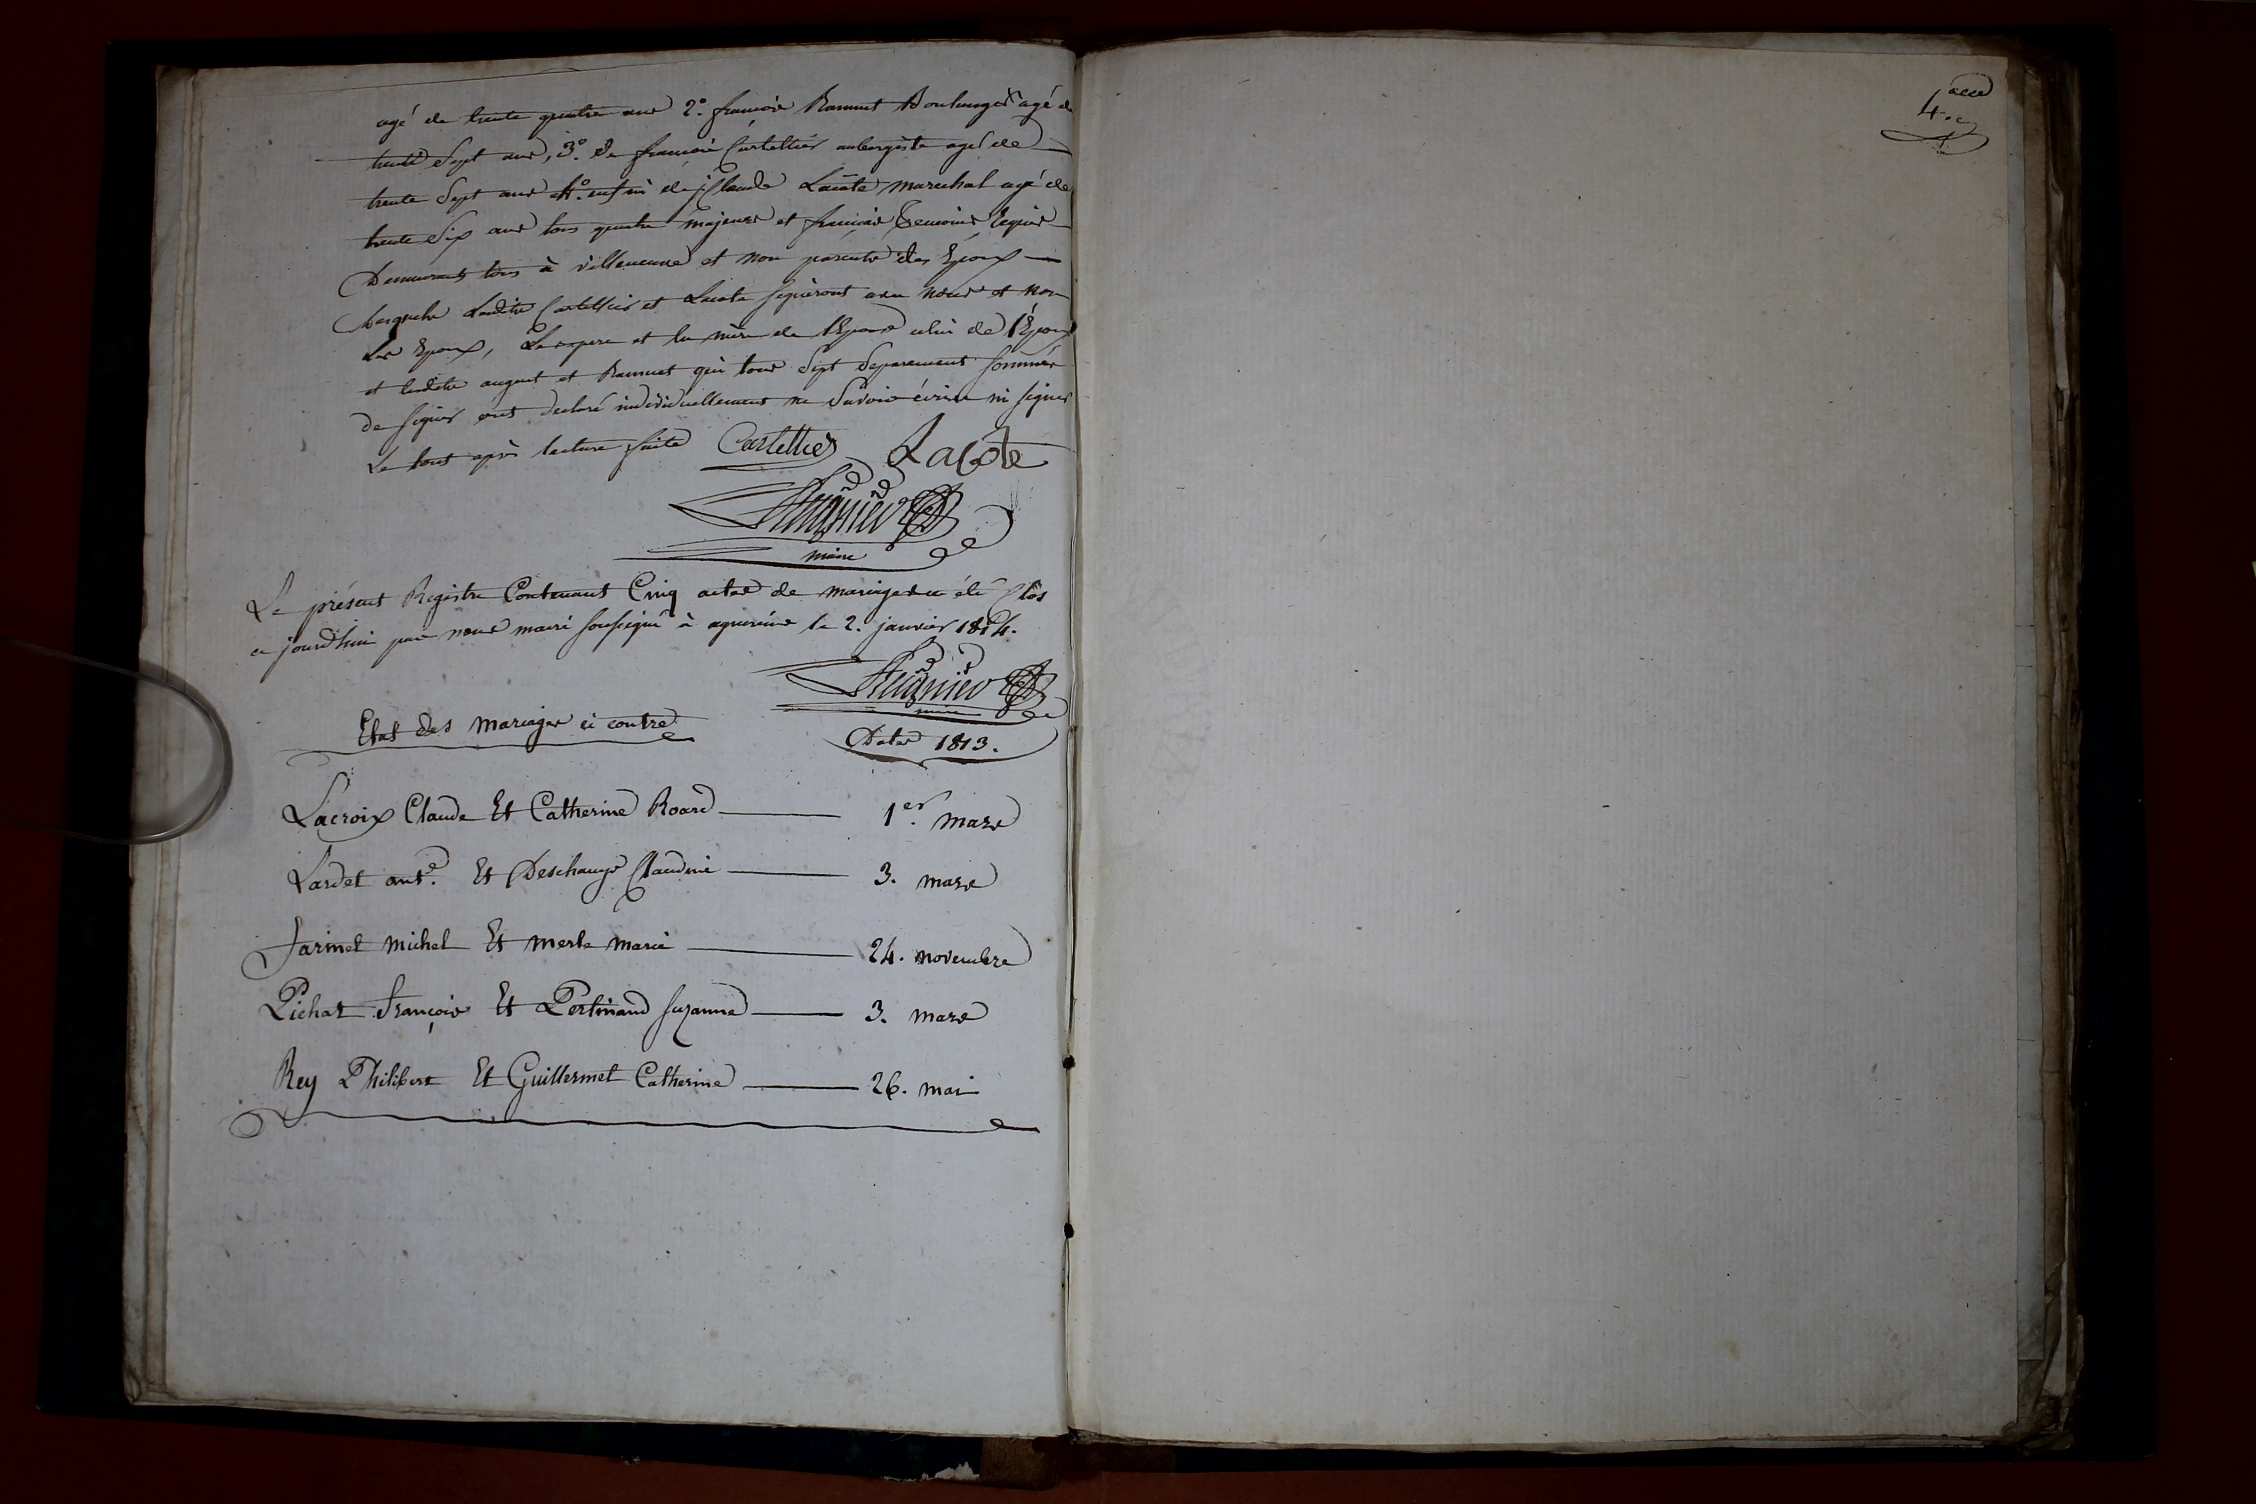 agé de trente quatre ans 2.° françois Ramuet Boulanger agé de
trente Sept ans, 3.° De françois Cartellier aubergiste agé de
trente Sept ans 4.° enfin de Claude Lacote marechal agé de
trente Six ans tous quatre majeurs et français temoins Requis
Demeurant tous à villeneuve et non parents des Epoux
lesquels Cartellier et Lacote signeront avec nous et non
Les Epoux, Le pere et la mère de l'Epouse celui de l'Époux
et auguet et Ramuet qui tous Sept Separement sommés
de signer ont declaré individuellement ne Savoir écrire ni signer
Le tout après lecture faite Cartellier Lacote
maire
Le présent Registre Contenant Cinq actes de mariages a été Clos
ce jourd'hui par nous maire soussigné à agnereins le 2. janvier 1814.
maire
Etat des mariages ci contre
Dates 1813.
Lacroix Claude Et Catherine Roard 1.er mars
Lardet ant.e Et Deschamps Claudine 3. mars
Farinet michel Et merle marie 24. novembre
Pichat François Et Pertinand suzanne 3. mars
Rey Philibert Et Guillermet Catherine 26. mai
4.e